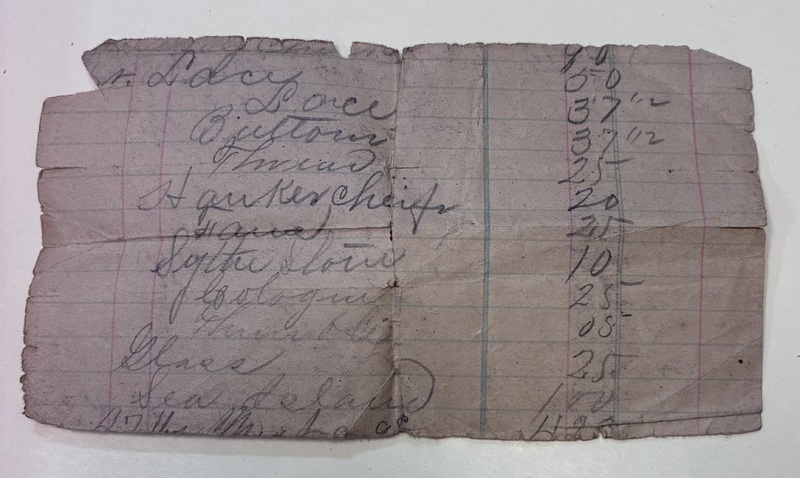 90
Lace 50
Lace 37 1/2
Buttons 37 1/2
Thread 25
Hankercheifs 20
25
Sythe Stone 10
Cologne 25
Thimble 05
Glass 25
Sea Island 1 00
47